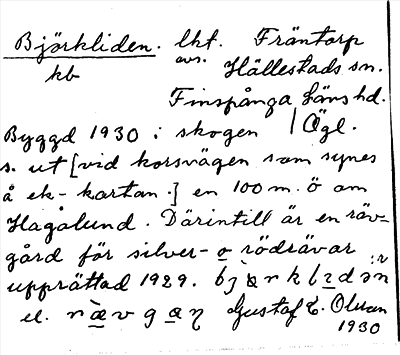 Björkliden. lht. Fräntorp
kb avs. Hällestads sn.
Finspånga läns hd.
Byggd 1930 i skogen / Ögl.
s. ut [vid korsvägen som synes
å ek-kartan.] en 100 m. ö om
Hagalund. Därintill är en räv-
gård för silver- o rödrävar
upprättad 1929.
el. Gustaf E. Olsson
1930